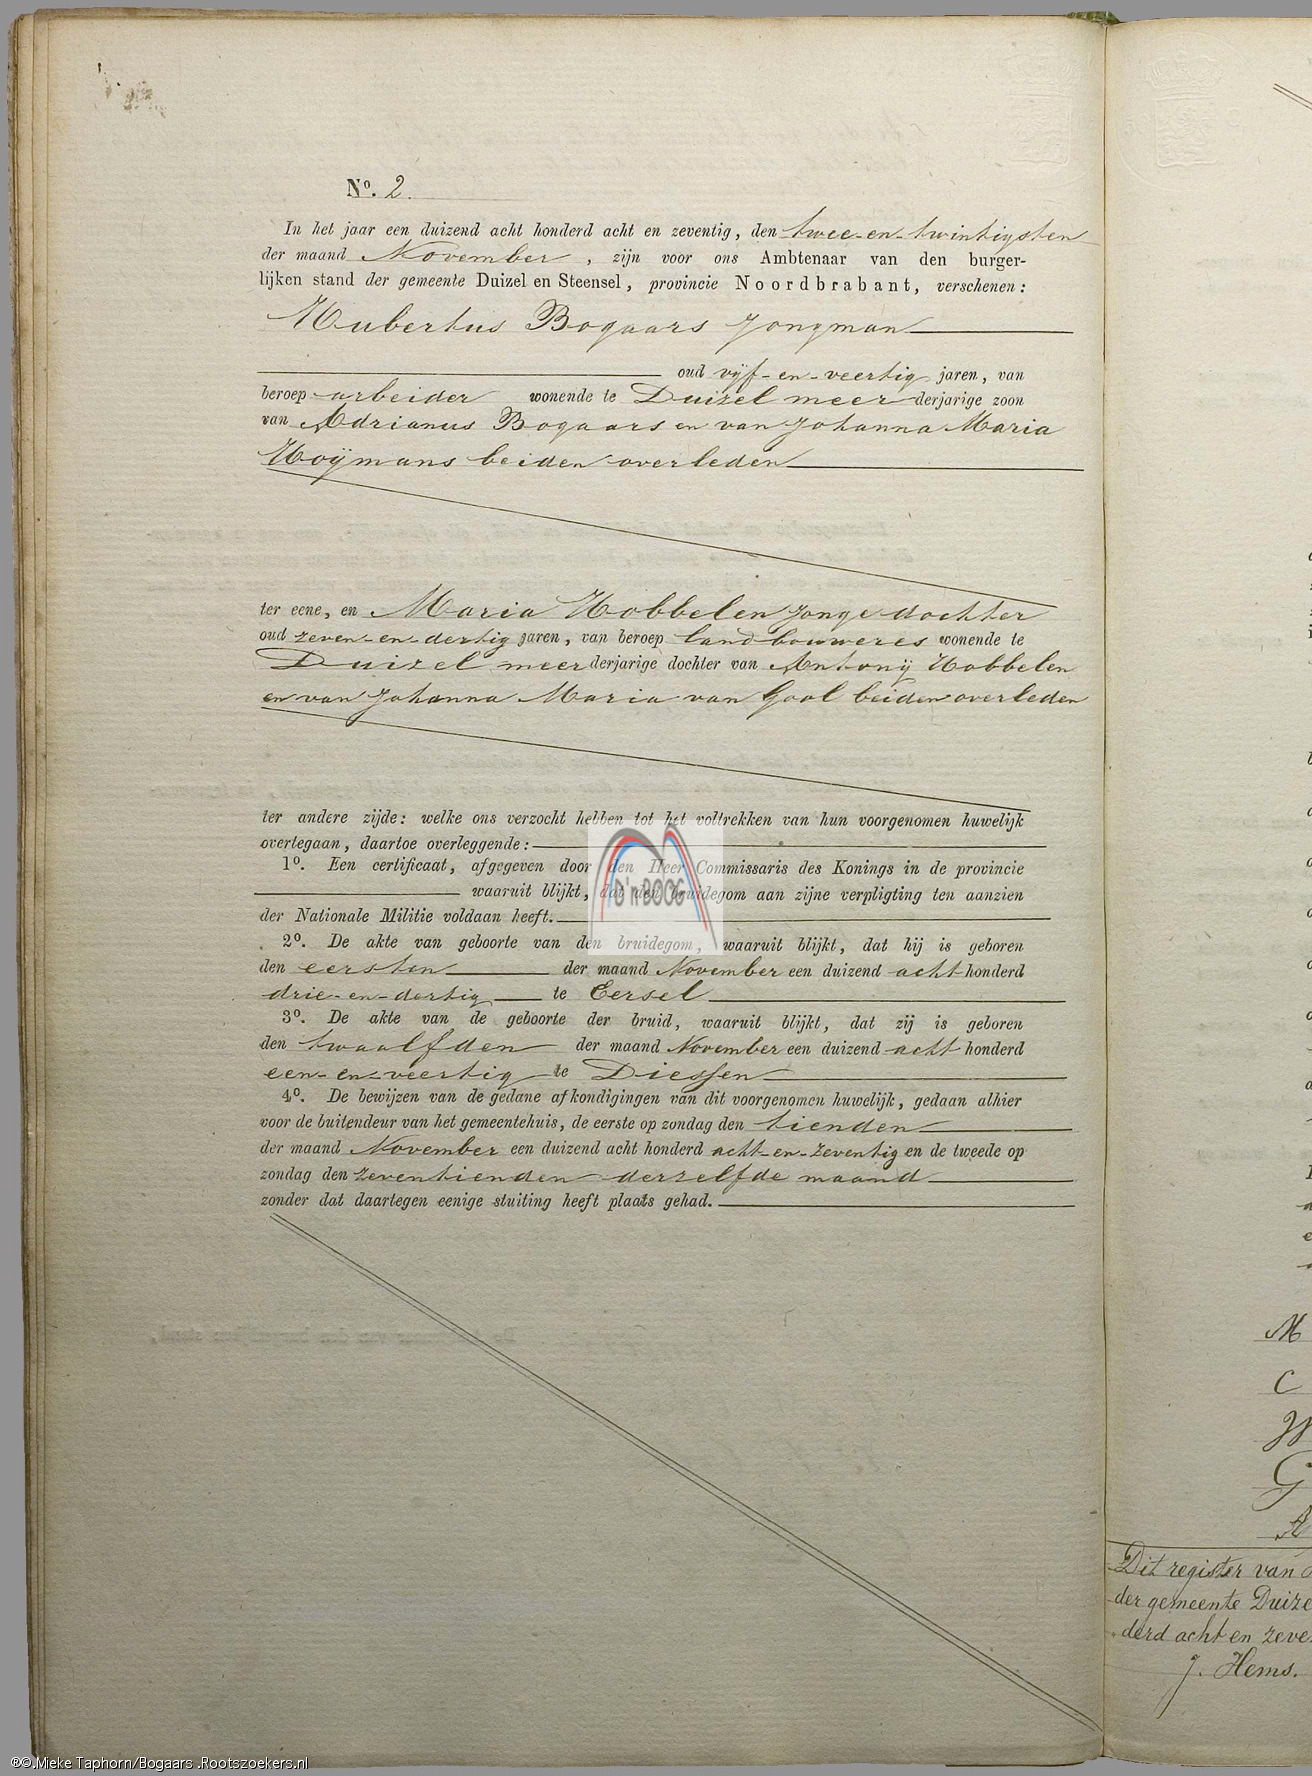 No. 2.
In het jaar een duizend acht honderd acht en zeventig, den twee-en-twintigsten
der maand November, zijn voor ons Ambtenaar van den burger-
lijken stand der gemeente Duizel en Steensel, provincie Noordbrabant, verschenen:
Hubertus Bogaars Jongman
oud vijf-en-veertig jaren, van
beroep arbeider wonende te Duizel meerderjarige zoon
van Adrianus Bogaars en van Johanna Maria
Hoÿmans beiden overleden
ter eene, en Maria Hobbelen jonge dochter
oud zeven-en-dertig jaren, van beroep landbouweres wonende te
Duizel meerderjarige dochter van Antonÿ Hobbelen
en van Johanna Maria van Gool beiden overleden
ter andere zijde: welke ons verzocht hebben tot het voltrekken van hun voorgenomen huwelijk
overtegaan, daartoe overleggende:
1o. Een certificaat, afgegeven door den Heer Commissaris des Konings in de provincie
waaruit blijkt, dat den bruidegom aan zijne verpligting ten aanzien
der Nationale Militie voldaan heeft.
D'n BOOG
2o. De akte van geboorte van den bruidegom, waaruit blijkt, dat hij is geboren
den eersten der maand November een duizend acht honderd
drie-en-dertig te Eersel
3o. De akte van de geboorte der bruid, waaruit blijkt, dat zij is geboren
den twaalfden der maand November een duizend acht honderd
een-en-veertig te Diessen
4o. De bewijzen van de gedane afkondigingen van dit voorgenomen huwelijk, gedaan alhier
voor de buitendeur van het gemeentehuis, de eerste op zondag den tienden
der maand November een duizend acht honderd acht-en-zeventig en de tweede op
zondag den zeventienden derzelfde maand
zonder dat daartegen eenige stuiting heeft plaats gehad.
M
C
W
G
A
Dit register van
der gemeente Duize
derd acht en zeve
J. Hems.
®©.Mieke Taphorn/Bogaars .Rootszoekers.nl